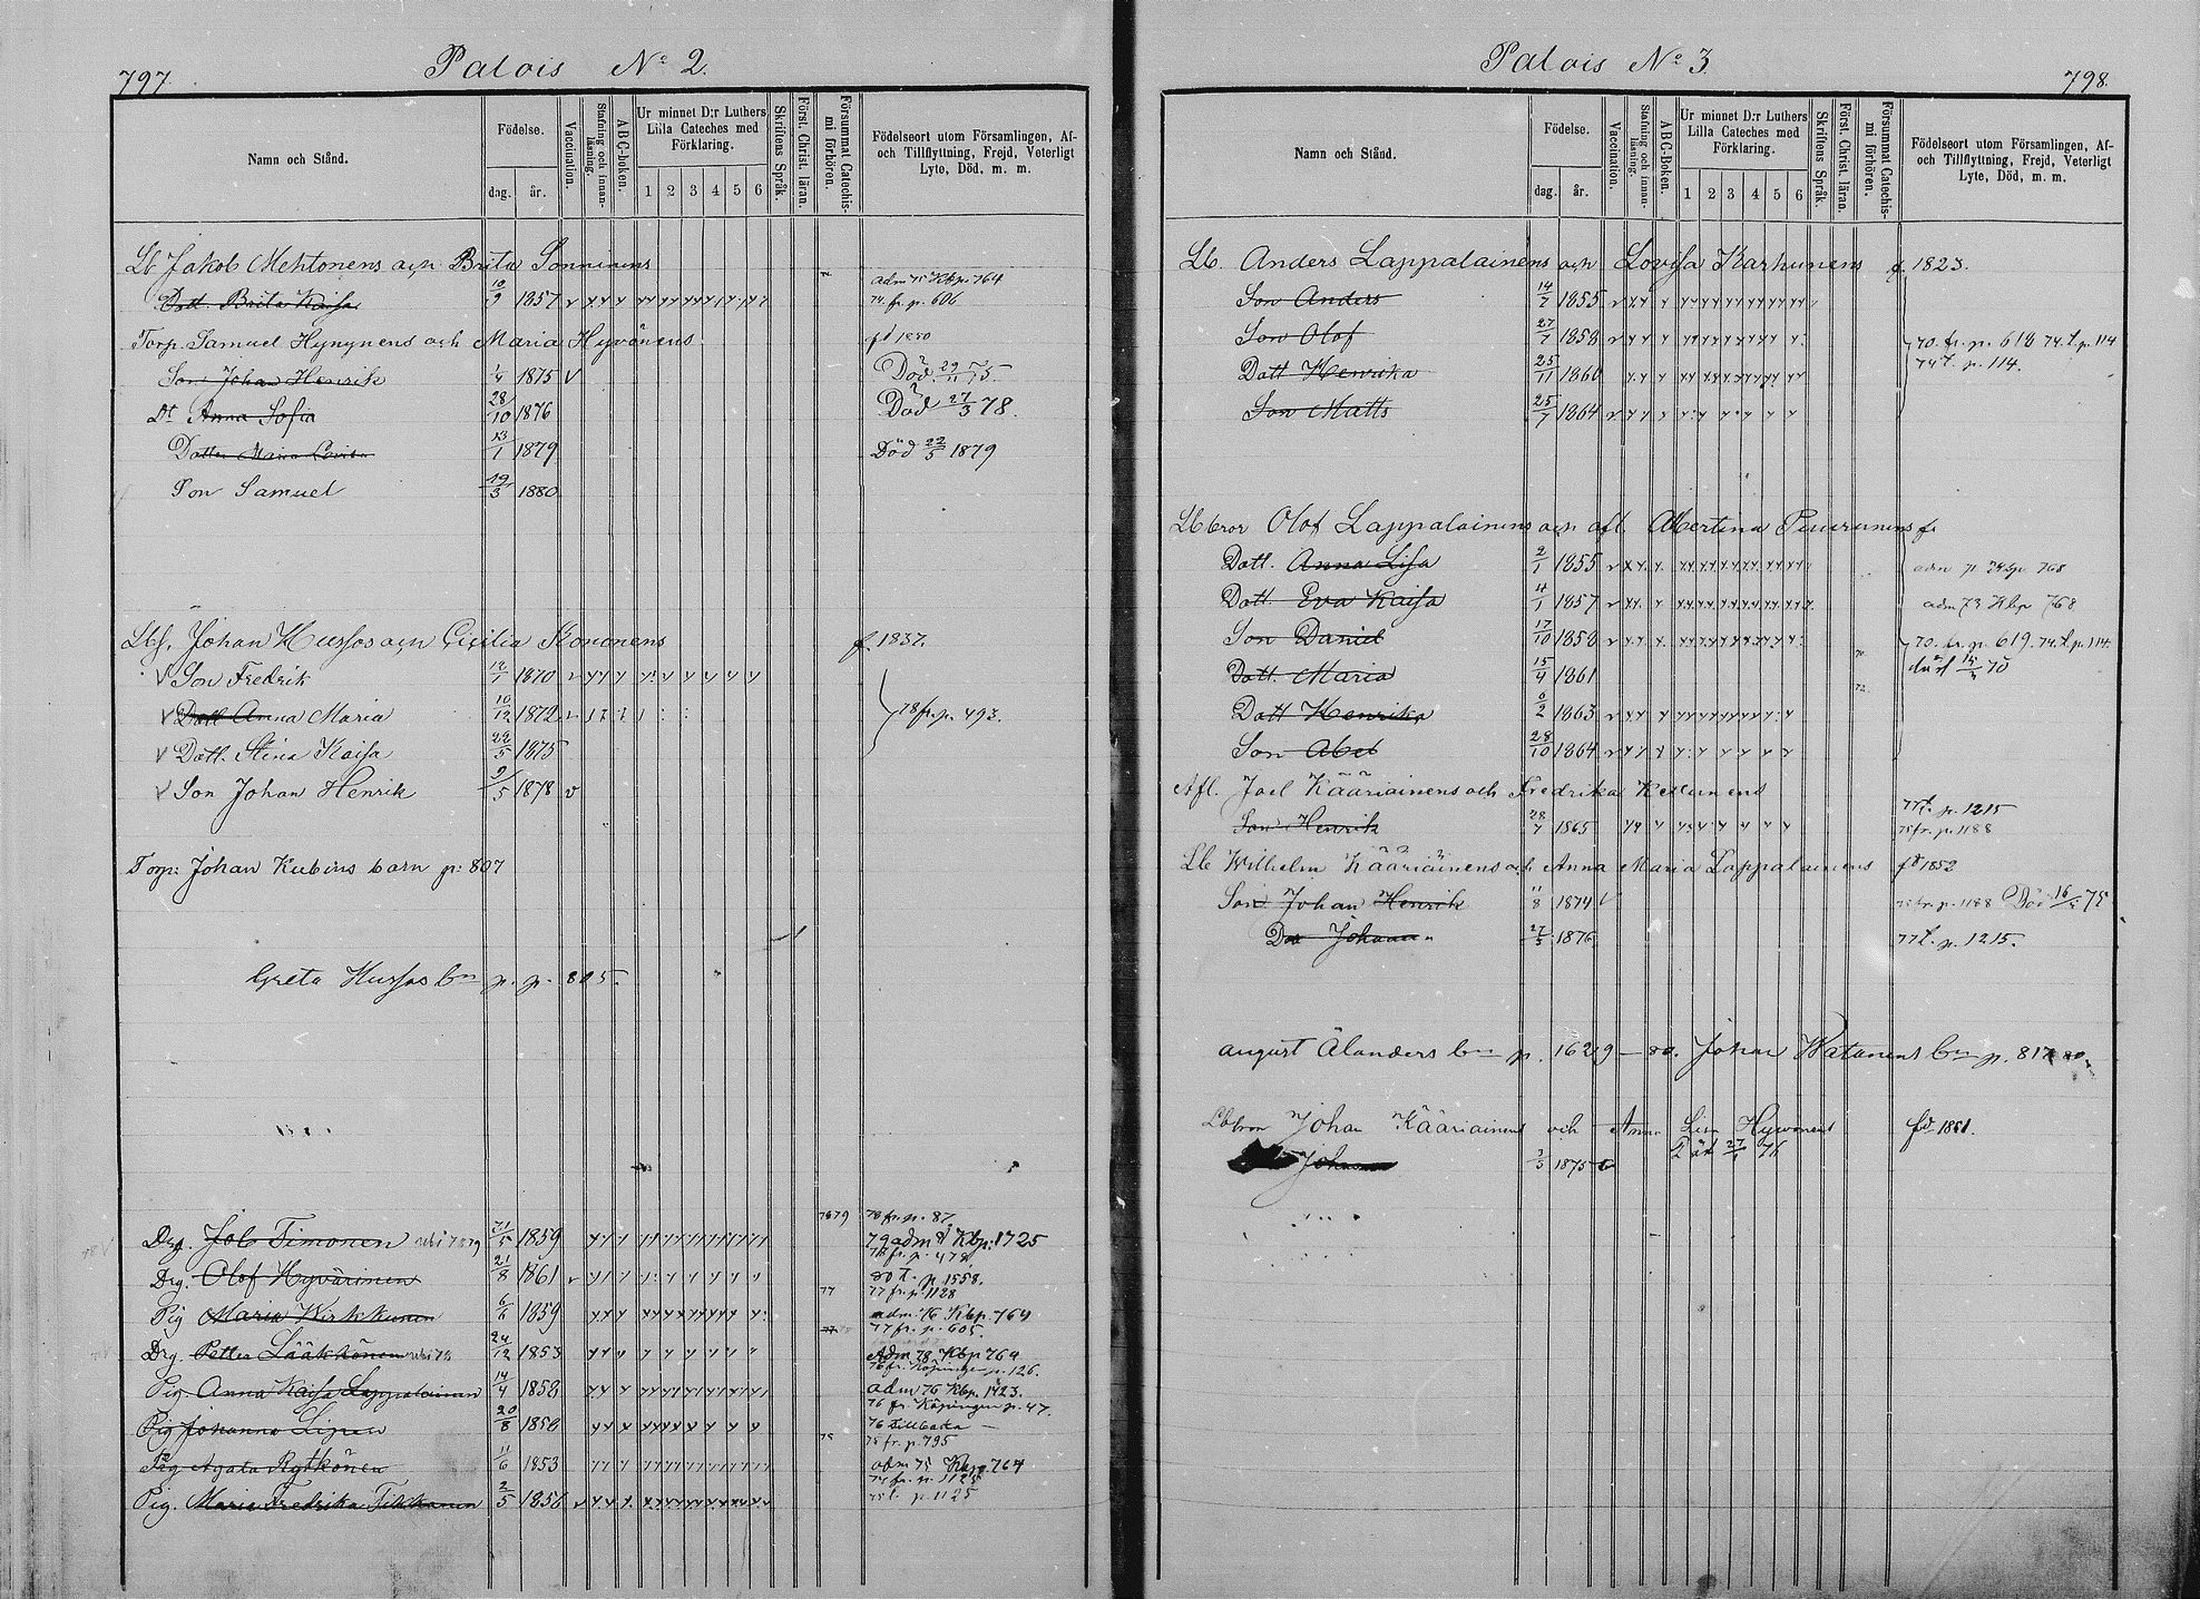 797.
Palois No 2.
Namn och Stånd.
Födelse.
dag.
år.
Vaccination.
Stafning och innanläsning.
ABC-boken.
Ur minnet D:r Luthers Lilla Cateches med Förklaring.
1 2 3 4 5 6
Skriftens Språk.
Först. Christ. läran.
Försummat Catechismi förhören.
Födelseort utom Församlingen, Af- och Tillflyttning, Frejd, Veterligt Lyte, Död, m. m.
Lb Jakob Mehtonens och Brita Sonninens
Dott. Brita Kaisa 10/9 1857 adm 75 Kbp 764 74 fr. p. 606
Torp. Samuel Hynynens och Maria Hyvönens fd 1850
Son Johan Henrik 1/4 1875 v Död 29/11 75.
Dt Anna Sofia 28/10 1876 Död 27/3 78.
Dotter Maria Lovisa 13/1 1879 Död 22/5 1879
Son Samuel 19/3 1880
Lbf. Johan Hussos och Cicilia Kononens f. 1837.
v Son Fredrik 12/7 1870
v Dott Anna Maria 10/12 1872 78 fr. p. 493.
v Dott. Stina Kaisa 22/5 1875
v Son Johan Henrik 9/5 1878 v
Torp: Johan Kubins barn p: 807
Greta Hussos bn p. p. 805.
Drg. Job Timonen 31/5 1859 7879 78 fr. p. 87. 79 adm Kbp: 1725
Drg. Olof Hyvärinen 21/8 1861 78 fr. p. 478 80 t. p. 1558.
Pig Maria Wirkkunen 6/6 1859 77 77 fr. p. 1128 adm. 76 Kbp. 764
Drg. Petter Lääkkönen 24/12 1853 77 fr. p. 605. Adm 78 Kbp 764
Pig. Anna Kaisa Lappalainen 14/4 1858 76 fr. Köpingen p. 126. adm 76 Kbp. 1423.
Pig Johanna 20/8 1858 76 fr. Köpingen p. 47. 76 tillbaka —
Pig Agata Rytkönen 11/6 1853 75 75 fr. p. 795 adm 75 Kbp. 764
Pig. Maria Fredrika Tikkanen 2/5 1856 75 fr. p. 1125 75 t. p. 1125
Palois No 3
798.
Namn och Stånd.
Födelse.
dag.
år.
Vaccination.
Stafning och innanläsning.
ABC-Boken.
Ur minnet D:r Luthers Lilla Cateches med Förklaring.
1 2 3 4 5 6
Skriftens Språk.
Först. Christ. läran.
Försummat Catechismi förhören.
Födelseort utom Församlingen, Af- och Tillflyttning, Frejd, Veterligt Lyte, Död, m. m.
Lb. Anders Lappalainens och Lovisa Karhunens f. 1823.
Son Anders 14/7 1855
Son Olof 27/7 1858 70. fr. p. 618 74. t. p. 114
Dott Henrika 25/11 1860 74 t. p. 114.
Son Matts 25/7 1864
Lb bror Olof Lappalainens och afl. Albertina Puurunens f.
Dott. Anna Lisa 2/1 1855 adm 768
Dott. Eva Kaisa 4/1 1857 adm 73 Kbp 768
Son Daniel 17/10 1858 70. fr. p. 619. 74. t. p. 114.
Dott. Maria 15/4 1861 70 död 70
Dott Henrika 6/2 1863 72
Son Abel 28/10 1864
Afl. Joel Kääriäinens och Fredrika Kellunens
Son Henrik 28/7 1865 77 t. p. 1215 75 fr. p. 1188
Lb Wilhelm Kääriäinens och Anna Maria Lappalainens fd 1852
Son Johan Henrik 11/8 1874 v 75 fr. p. 1188 Död 75
Johanna 27/5 1876 77 t. p. 1215.
august Ålanders bn p. 1629 — 80. Johan Watanens bn p. 817
Lbbron Johan Kääriainens och Anna Lisa Hyvönens fd. 1851.
Johanna 3/5 1875